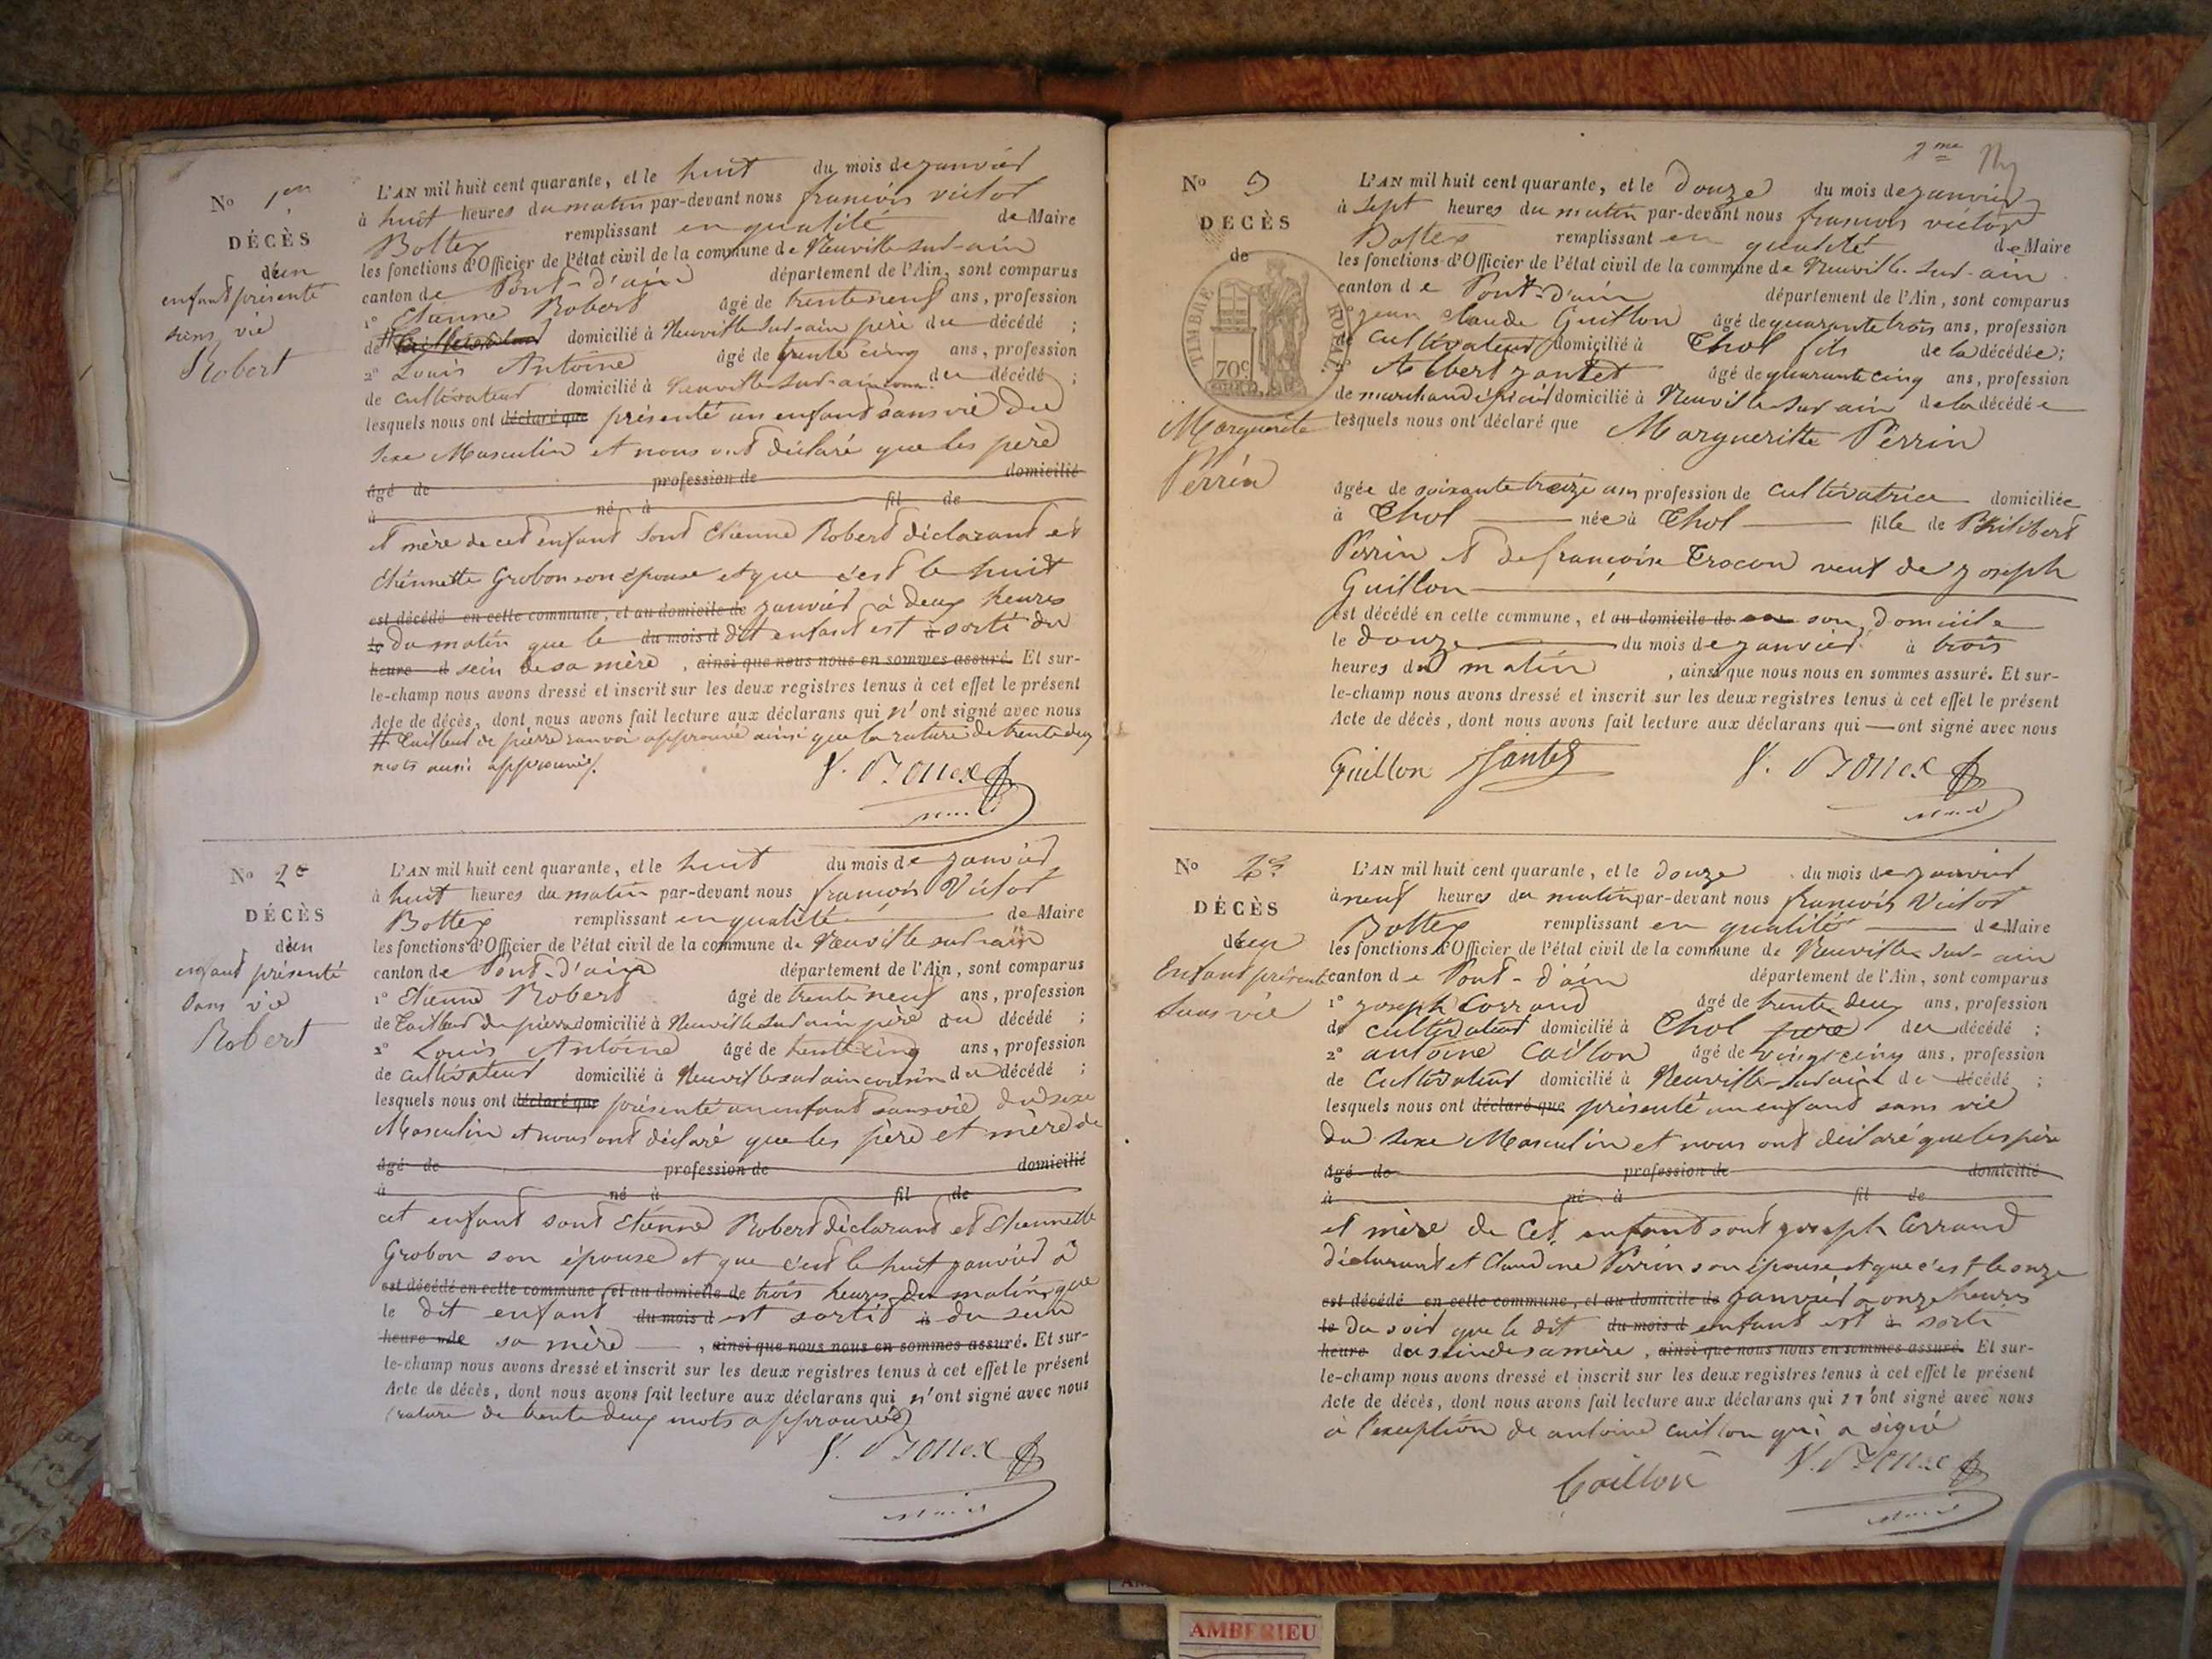 No 1er
DÉCÈS
d'un
enfant présenté
sans vie
Robert
L'AN mil huit cent quarante, et le huit du mois de janvier
à huit heures du matin par-devant nous françois victor
Bottex remplissant en qualité de Maire
les fonctions d'Officier de l'état civil de la commune de Neuville sur-ain
canton de Pont-d'ain département de l'Ain, sont comparus
1° Etienne Robert âgé de trente neuf ans, profession
de # domicilié à Neuville sur-ain père du décédé ;
2° Louis Antoine âgé de trente cinq ans, profession
de cultivateur domicilié à Neuville sur-ain du décédé ;
lesquels nous ont déclaré que présenté un enfant sans vie du
sexe Masculin et nous ont déclaré que les père
âgé de profession de domicilié
à né à fil de
et mère de cet enfant sont Etienne Robert déclarant et
Etiennette Grobon son épouse et que c'est le huit
est décédé en cette commune, et au domicile de janvier à deux heures
le du matin que le du mois d dit enfant est à sorti du
heure d sein de sa mère, ainsi que nous nous en sommes assuré. Et sur-
le-champ nous avons dressé et inscrit sur les deux registres tenus à cet effet le présent
Acte de décès, dont nous avons fait lecture aux déclarans qui n'ont signé avec nous
# Tailleur de pierre renvoi approuvé ainsi que la rature de trente deux
mots aussi approuvés.
V. Bottex
maire
No 2e
DÉCÈS
d'un
enfant présenté
sans vie
Robert
L'AN mil huit cent quarante, et le huit du mois de janvier
à huit heures du matin par-devant nous françois Victor
Bottex remplissant en qualité de Maire
les fonctions d'Officier de l'état civil de la commune de Neuville sur ain
canton de Pont-d'ain département de l'Ain, sont comparus
1° Etienne Robert âgé de trente neuf ans, profession
de Tailleur de pierre domicilié à Neuville sur ain père du décédé ;
2° Louis Antoine âgé de trente cinq ans, profession
de cultivateur domicilié à Neuville sur ain cousin du décédé ;
lesquels nous ont déclaré que présenté un enfant sans vie du sexe
Masculin et nous ont déclaré que les père et mère de
âgé de profession de domicilié
à né à fil de
cet enfant sont Etienne Robert déclarant et Etiennette
Grobon son épouse et que c'est le huit janvier à
est décédé en cette commune, et au domicile de trois heures du matin que
le dit enfant du mois d est sorti à du sein
heure de sa mère, ainsi que nous nous en sommes assuré. Et sur-
le-champ nous avons dressé et inscrit sur les deux registres tenus à cet effet le présent
Acte de décès, dont nous avons fait lecture aux déclarans qui n'ont signé avec nous
(rature de trente deux mots approuvés)
V. Bottex
maire
2me
No 3
DÉCÈS
de
TIMBRE ROYAL
70c
Marguerite
Perrin
L'AN mil huit cent quarante, et le douze du mois de janvier
à sept heures du matin par-devant nous françois victor
Bottex remplissant en qualité de Maire
les fonctions d'Officier de l'état civil de la commune de Neuville-sur-ain
canton de Pont-d'ain département de l'Ain, sont comparus
1° jean claude Guillon âgé de quarante trois ans, profession
de cultivateur domicilié à Thol fils de la décédée ;
Albert jantet âgé de quarante cinq ans, profession
de marchand épicier domicilié à Neuville sur ain de la décédée
lesquels nous ont déclaré que Margueritte Perrin
âgée de soixante treize ans profession de cultivatrice domiciliée
à Thol née à Thol fille de Philibert
Perrin et de françoise Trocon veuf de joseph
Guillon
est décédé en cette commune, et au domicile de son domicile
le douze du mois de janvier à trois
heures du matin, ainsi que nous nous en sommes assuré. Et sur-
le-champ nous avons dressé et inscrit sur les deux registres tenus à cet effet le présent
Acte de décès, dont nous avons fait lecture aux déclarans qui ont signé avec nous
Guillon Jantet V. Bottex
maire
No
DÉCÈS
d'un
Enfant présenté
sans vie
L'AN mil huit cent quarante, et le douze du mois de janvier
à neuf heures du matin par-devant nous françois Victor
Bottex remplissant en qualité de Maire
les fonctions d'Officier de l'état civil de la commune de Neuville sur-ain
canton de Pont-d'ain département de l'Ain, sont comparus
1° joseph Corrand âgé de trente deux ans, profession
de cultivateur domicilié à Thol père du décédé ;
2° antoine Caillon âgé de vingt cinq ans, profession
de Cultivateur domicilié à Neuville-sur ain du décédé ;
lesquels nous ont déclaré que présenté un enfant sans vie
du sexe Masculin et nous ont déclaré que les père
âgé de profession de domicilié
à né à fil de
et mère de cet enfant sont joseph Corrand
déclarant et Claudine Perrin son épouse et que c'est le onze
est décédé en cette commune, et au domicile de janvier à onze heures
le du soir que le dit du mois d enfant est à sorti
heure du sein de sa mère, ainsi que nous nous en sommes assuré. Et sur-
le-champ nous avons dressé et inscrit sur les deux registres tenus à cet effet le présent
Acte de décès, dont nous avons fait lecture aux déclarans qui n'ont signé avec nous
à l'exception de antoine caillon qui a signé
Caillon V. Bottex
maire
AMBERIEU